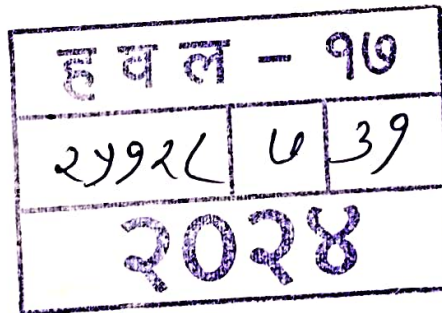 ह व ल - १७
२५१२८ ५ ३१
२०२४